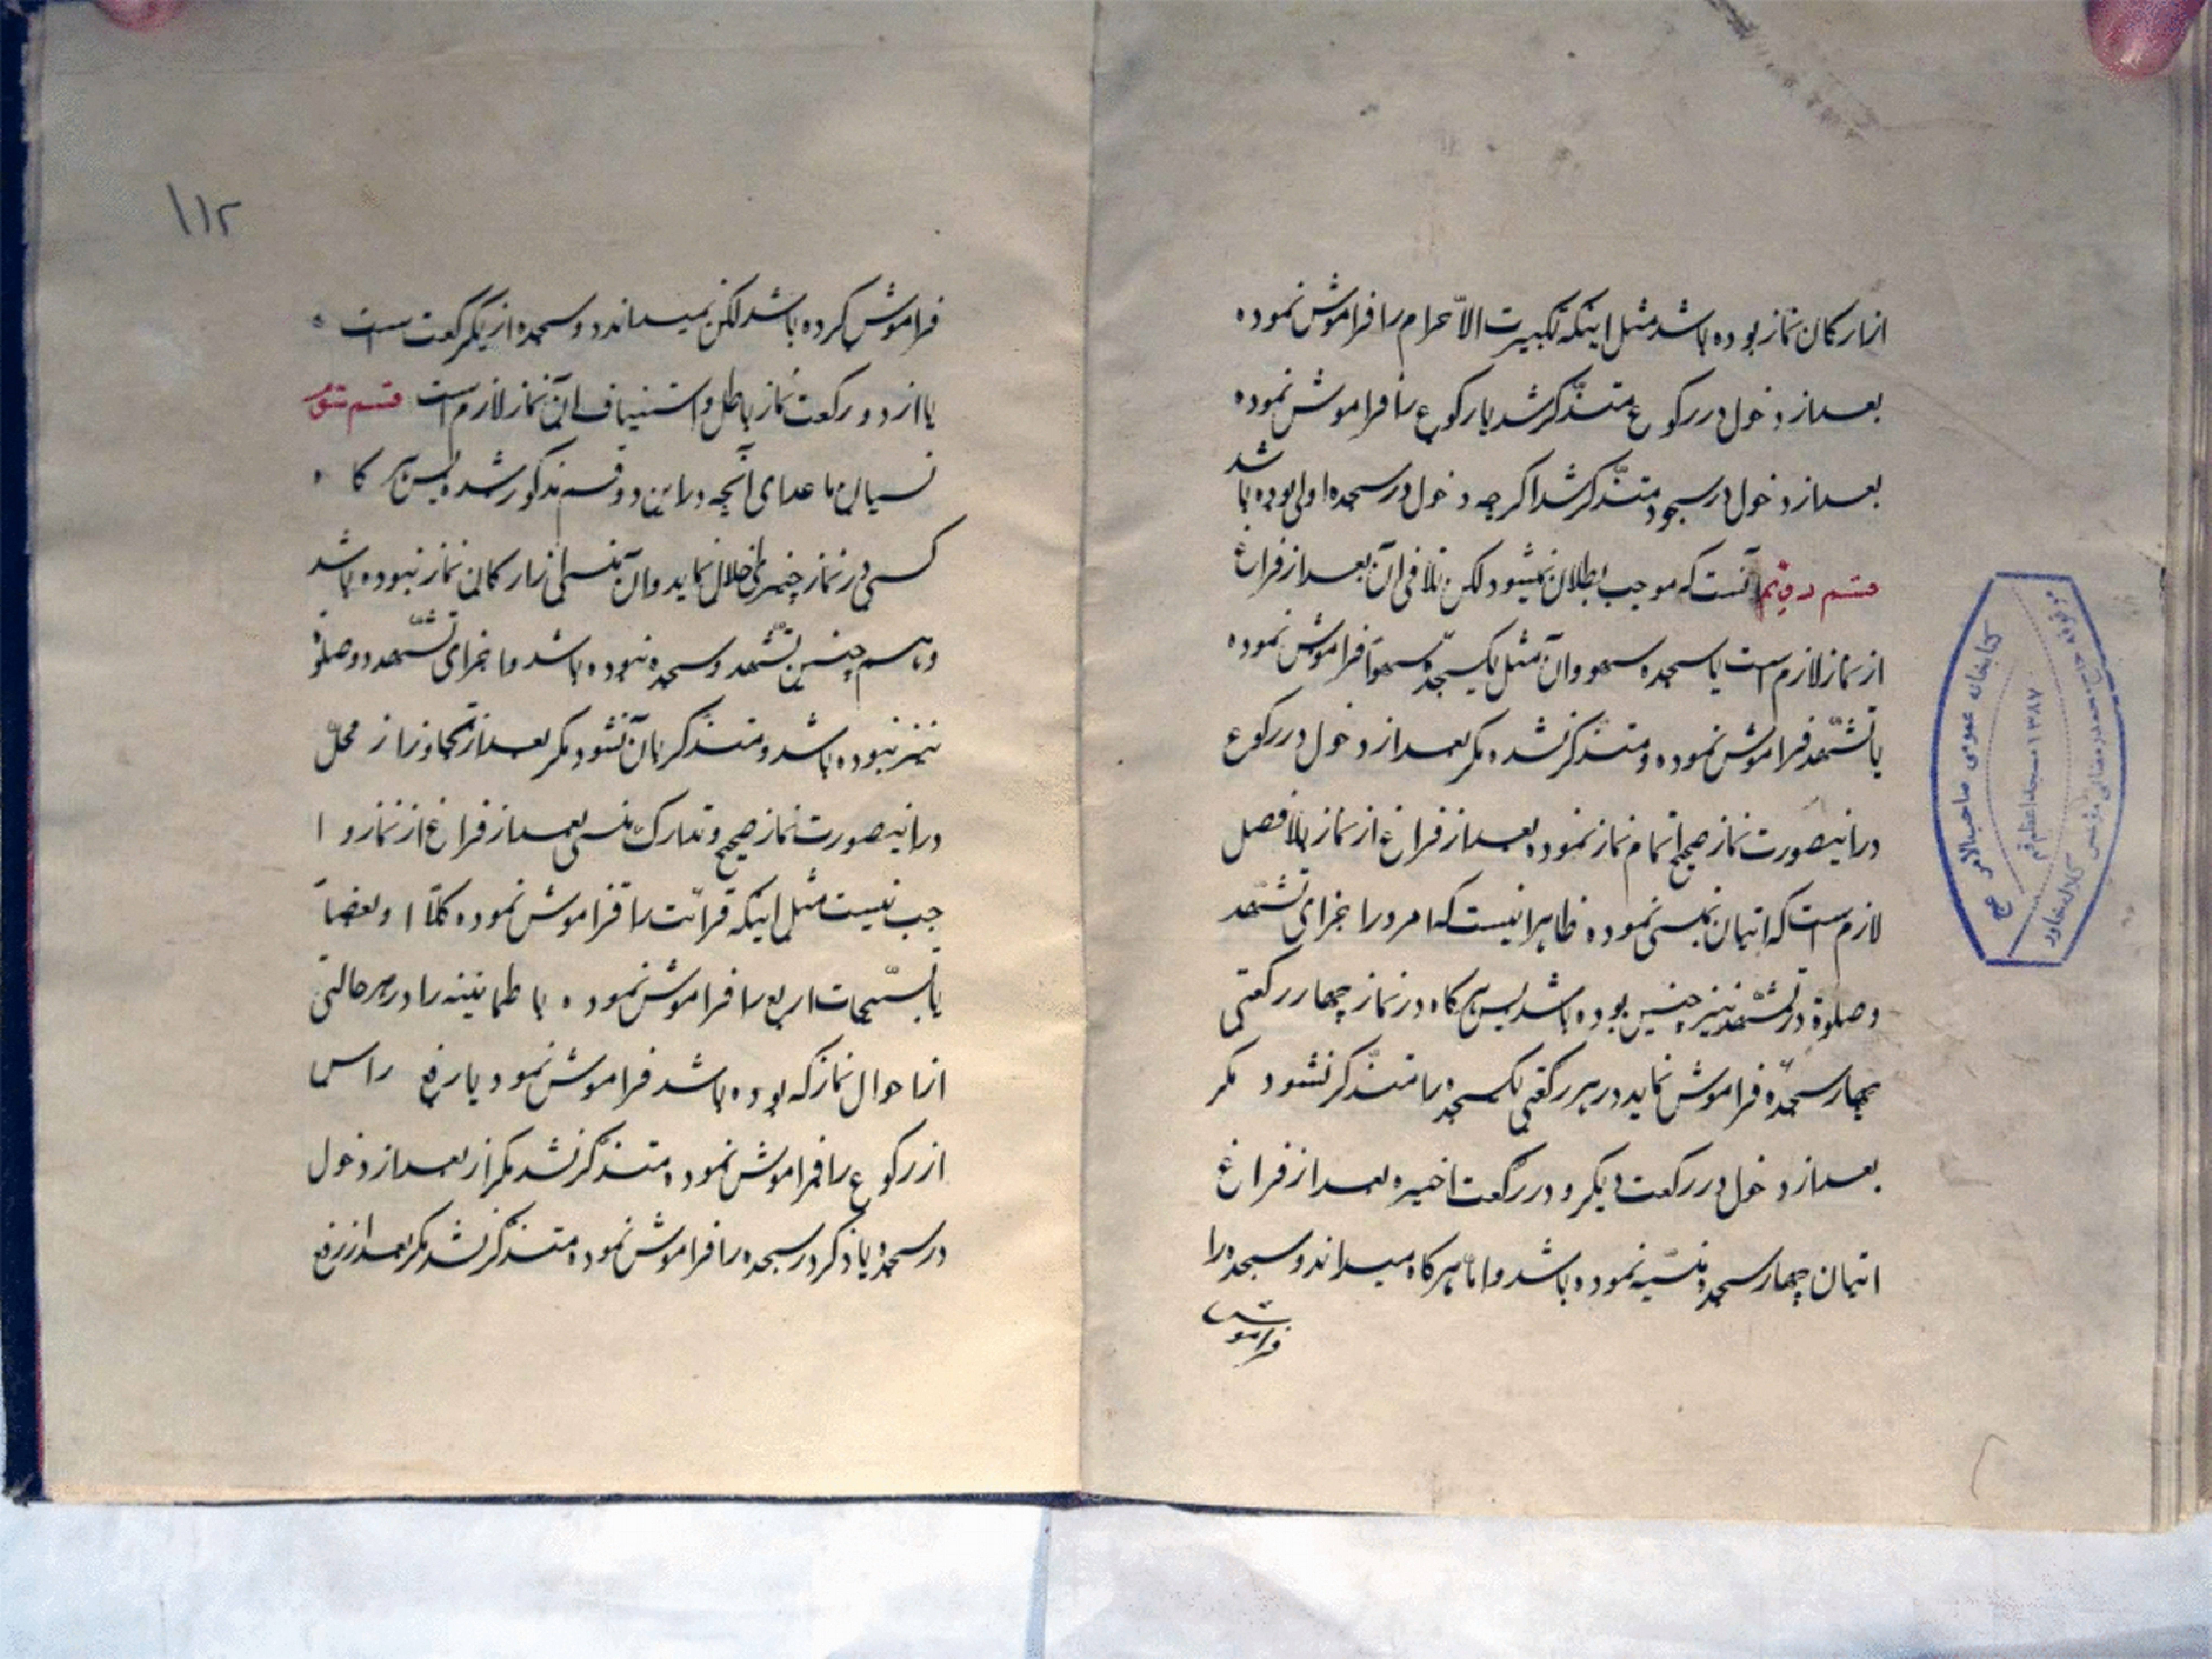 از ارکان نماز بوده باشد مثل اینکه تکبیرت الاحرام را فراموش نموده
بعد از دخول در رکوع متذکّر شد یا رکوع را فراموش نموده
بعد از دخول در سجود متذکّر شد اگرچه دخول در سجده اولی بوده باشد
قسم دویّم آنست که موجب بطلان نمیشود لکن تلافی آن بعد از فراغ
از نماز لازم است یا سجده سهو و آن مثل یکسجدهٔ سهواً فراموش نموده
یا تشهّد فراموش نموده و متذکّر نشده مگر بعد از دخول در رکوع
در اینصورت نماز صحیح اتمام نماز نموده بعد از فراغ از نماز بلافصل
لازم است که اتیان بمنسی نموده ظاهر اینست که امر در اجزای تشهّد
و صلوة در تشهّد نیز چنین بوده باشد پس هرکاه در نماز چهار رکعتی
چهار سجدّه فراموش نماید در هر رکعتی یکسجده را متذکّر نشود مگر
بعد از دخول در رکعت دیگر و در رکعت اخیره بعد از فراغ
اتیان چهار سجدهٔ منسیّه نموده باشد و امّا هرکاه میداند دو سجده را
فراموش
۱۱۲
فراموش کرده باشد لکن نمیداند دو سجده از یکرکعت است
یا از دو رکعت نماز باطل و استیناف این نماز لازم است قسم سوّم
نسیان ما عدای آنچه در این دو قسم مذکور شد پس هرکا
کسی در نماز چیزی اخلال نماید و آن منسی از ارکان نماز نبوده باشد
و هم چنین تشّهد و سجده نبوده باشد و اجزای تشّهد و صلوة
نیز نبوده باشد و متذکّر بان نشود مگر بعد از تجاوز از محلّ
در اینصورت نماز صحیح و تدارک منسی بعد از فراغ از نماز وا
جب نیست مثل اینکه قرائت را فراموش نموده کلّا او بعضاً
یا تسبیحات اربع را فراموش نموده یا طمانینه را در هر حالتی
از احوال نماز که بوده باشد فراموش نمود یا رفع راس
از رکوع را فراموش نموده متذکّر نشد مگر از بعد از دخول
در سجده یا ذکر در سجده را فراموش نموده متذکّر نشد مگر بعد از رفع
کتابخانه عمومی صاحب الامر عج
۱۳۸۷ مسجد اعظم